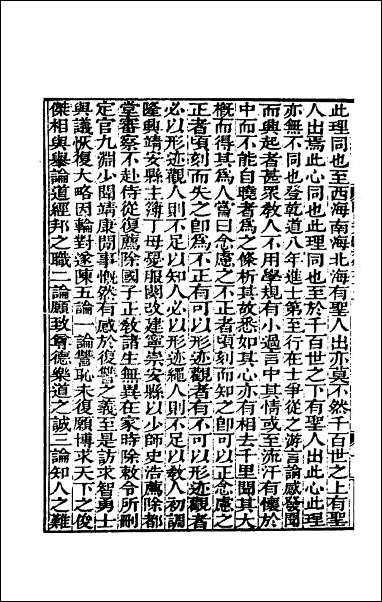 此理同也至西海南海北海有聖人出亦莫不然千百世之上有聖
人出焉此心同也此理同也至於千百世之下有聖人出此心此理
亦無不同也登乾道八年進士第至行在士爭從之游言論感發聞
而興起者甚衆教人不用學規有小過言中其情或至流汗有懷於
中而不能自曉者爲之條析其故悉如其心亦有相去千里聞其大
概而得其爲人嘗曰念慮之不正者頃刻而知之卽可以正念慮之
正者頃刻而失之卽爲不正有可以形迹觀者有不可以形迹觀者
必以形迹觀人則不足以知人必以形迹繩人則不足以救人初調
隆興靖安縣主簿丁母憂服闋改建寧崇安縣以少師史浩薦除都
堂審察不赴侍從復薦除國子正敎諸生無異在家時除敕令所刪
定官九淵少聞靖康間事慨然有感於復讐之義至是訪求智勇士
與議恢復大略因輪對遂陳五論一論讐恥未復願博求天下之俊
傑相與舉論道經邦之職二論願致尊德樂道之誠三論知人之難